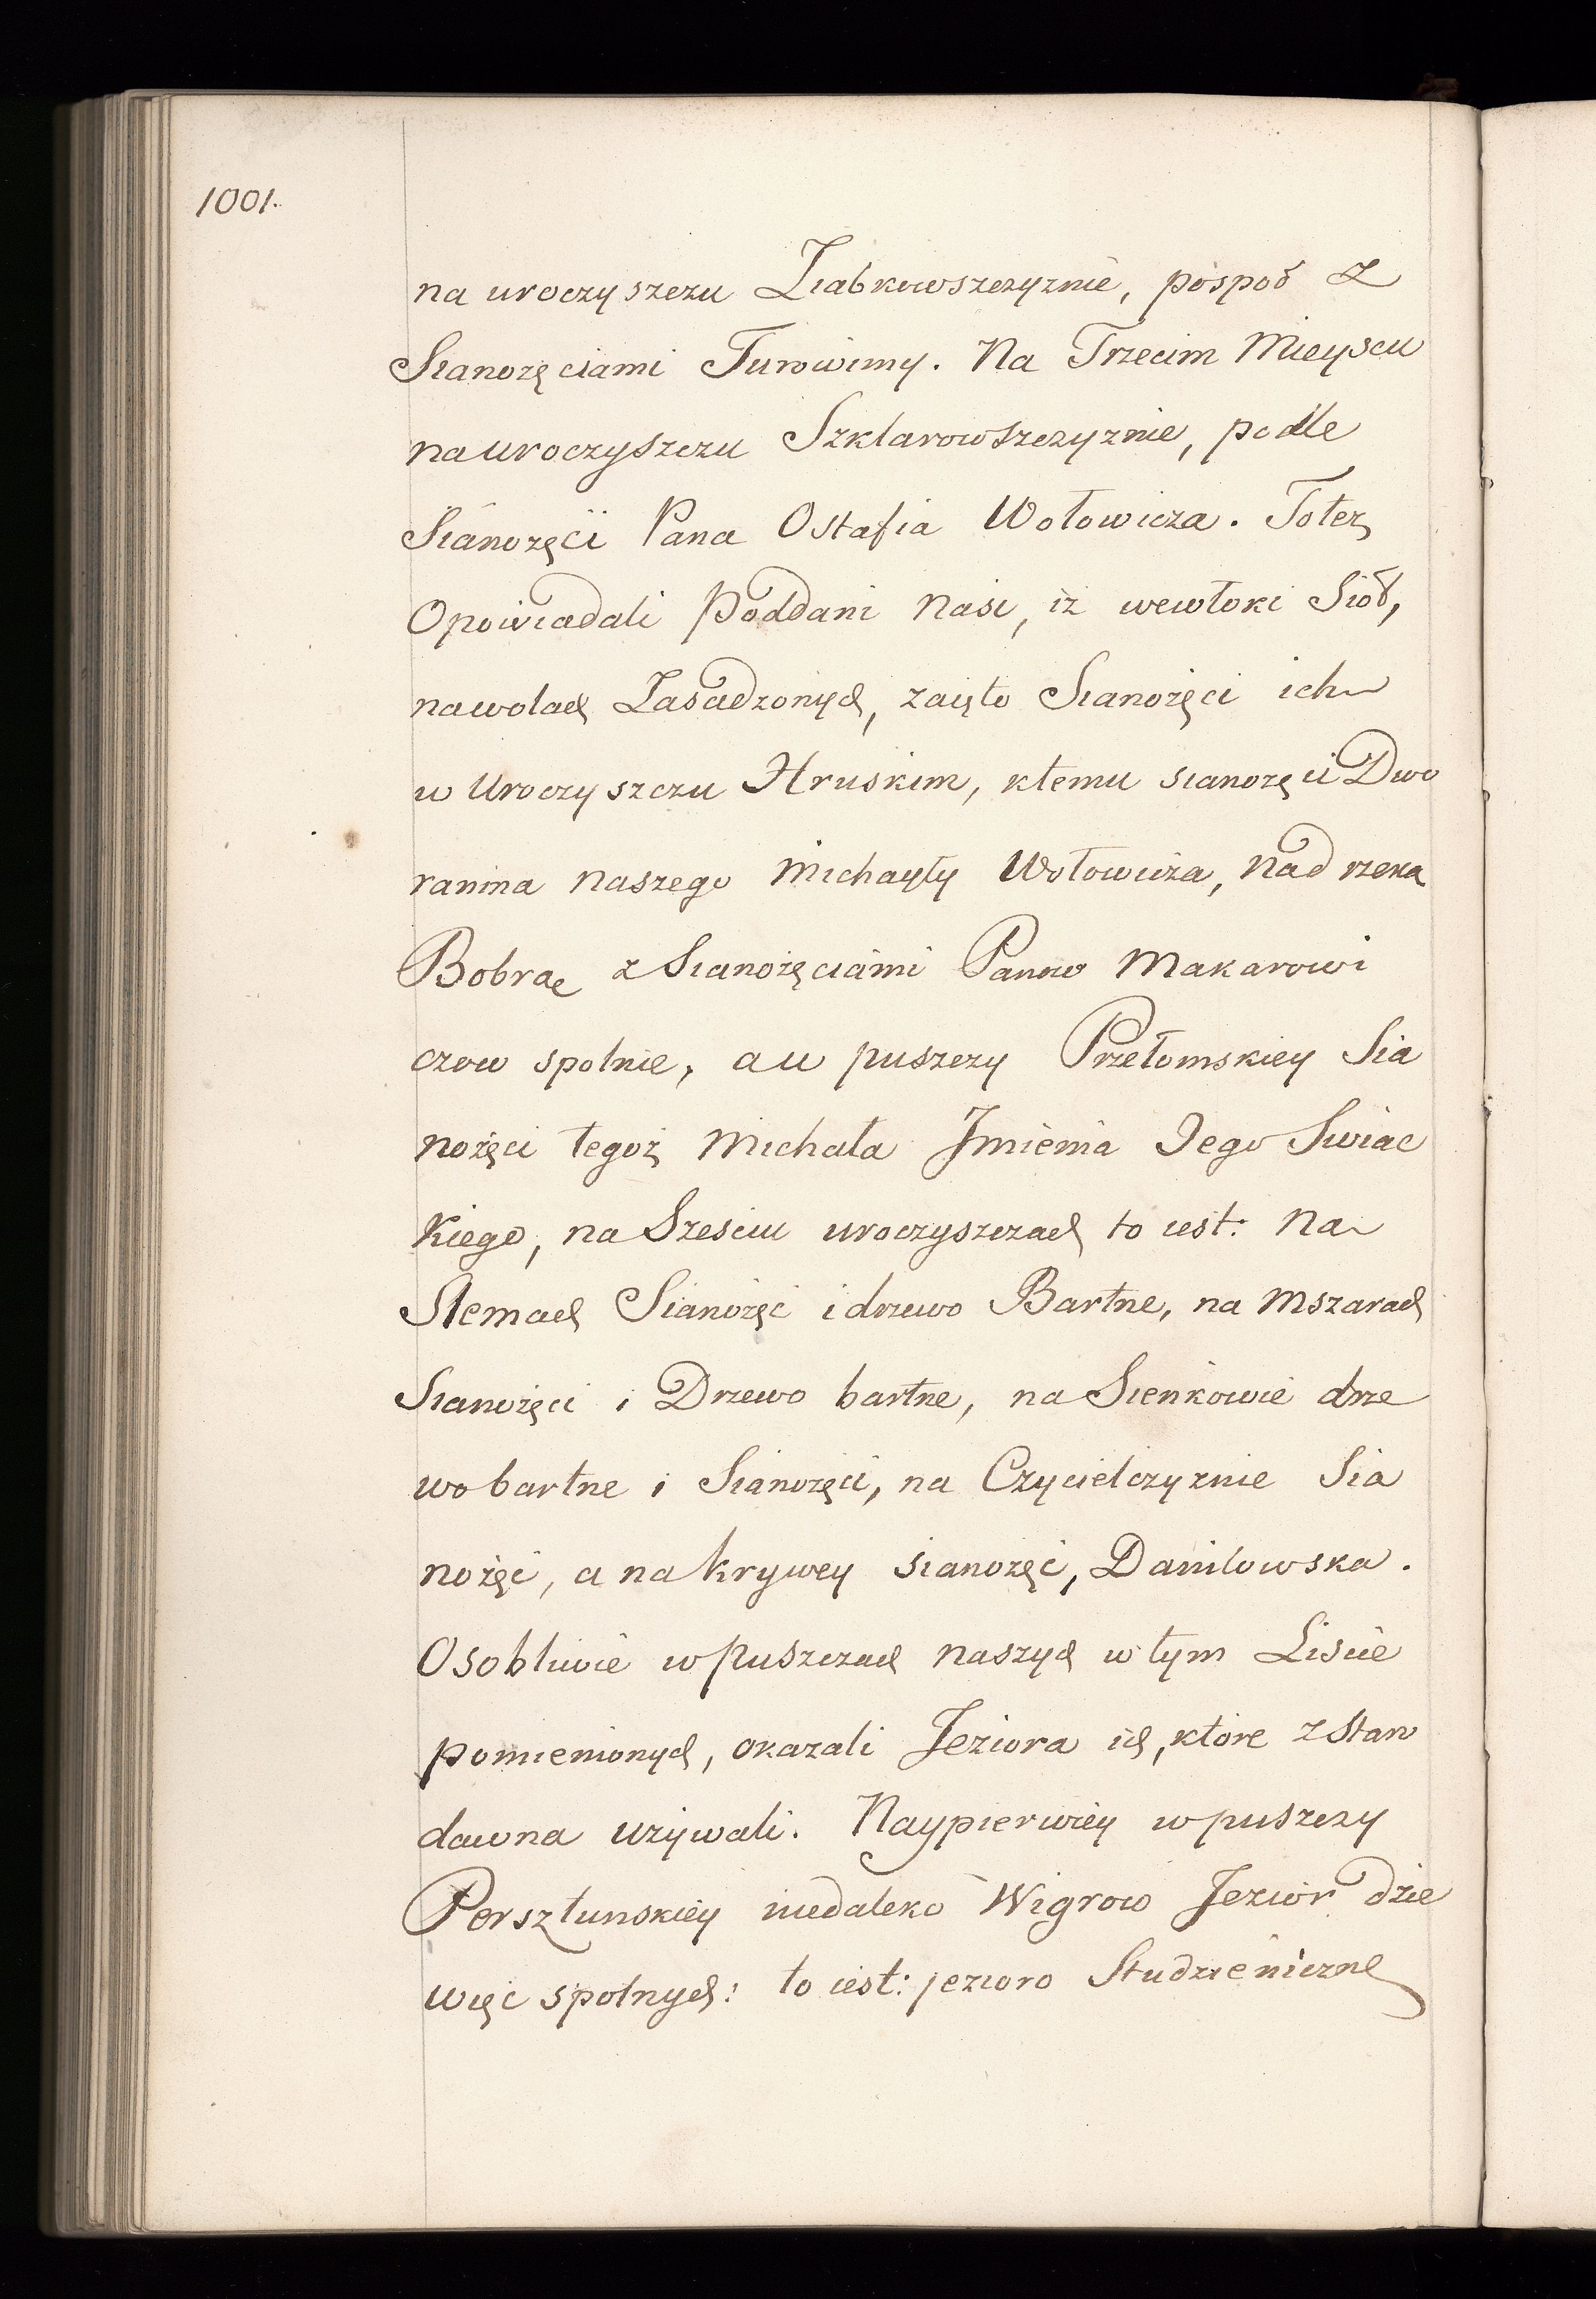 1001.
na uroczyszczu Ziabkowszczyznie, pospoł z
Sianozęciami Turowimy. Na Trzecim Mieyscu
na uroczyszczu Szklarowszczyznie, podle
Sianozęci Pana Ostafia Wołowicza. Toteż
Opowiadali Poddani Nasi, iż wewłoki Sioł,
nawolach Zasadzonych, zaięto Sianożęci ich
w Uroczyszczu Hruskim, ktemu sianozęci Dwo
ranina naszego Michayły Wołowicza, Nad rzeka
Bobrae z Sianożęciami Panow Makarowi
czow spolnie, a w puszczy Przełomskiey Sia
nożęci tegoż Michała Jmienia Jego Swiac
Kiego, na Szesciu uroczyszczach to iest: Na
Slemach Sianożęć i drzewo Bartne, na Mszarach
Sianożęci i Drzewo bartne, na Sienkowie drze
wo bartne i Sianozęci, na Czycielczyznie Sia
nożęć, a na Krywey sianozęć, Danilowska.
Osobliwie w Puszczach naszych w tym Liscie
pomienionych, okazali Jeziora ich, które z Staw
dawna używali. Naypierwiey w puszczy
Persztunskiey niedaleko Wigrow Jezior dzie
więć spolnych: to iest: jezioro Studzieniczne